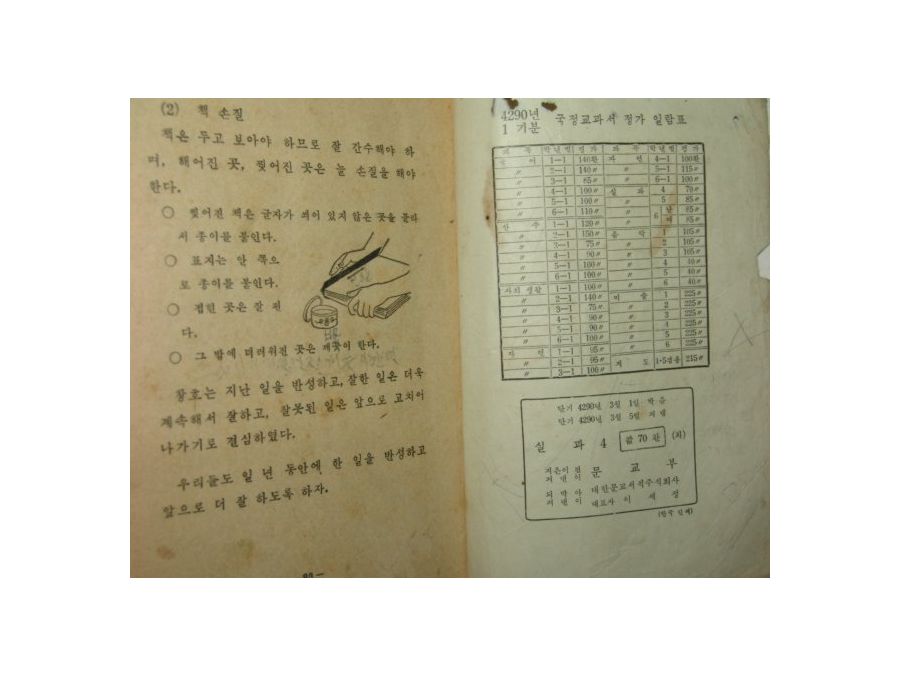 (2) 책 손질
책은 두고 보아야 하므로 잘 간수해야 하
며, 해어진 곳, 찢어진 곳은 늘 손질을 해야
한다.
○ 찢어진 책은 글자가 씌어 있지 않은 곳을 골라
서 종이를 붙인다.
○ 표지는 안 쪽으
로 종이를 붙인다.
○ 접힌 곳은 잘 편
다.
○ 그 밖에 더러워진 곳은 깨끗이 한다.
창호는 지난 일을 반성하고, 잘한 일은 더욱
계속해서 잘하고, 잘못된 일은 앞으로 고치어
나가기로 결심하였다.
우리들도 일 년 동안에 한 일을 반성하고
앞으로 더 잘 하도록 하자.
4290년
1 기분
국정교과서 정가 일람표
과 목 학년별 정 가 과 목 학년별 정 가
국 어 1—1 140환 자 연 4—1 100환
〃 2—1 140〃 〃 5—1 115〃
〃 3—1 85〃 〃 6—1 100〃
〃 4—1 100〃 실 과 4 70〃
〃 5—1 100〃 〃 5 85〃
〃 6—1 110〃 〃 6 남 85〃
산 수 1—1 120〃 여 85〃
〃 2—1 150〃 음 악 1 105〃
〃 3—1 75〃 〃 2 105〃
〃 4—1 90〃 〃 3 105〃
〃 5—1 100〃 〃 4 40〃
〃 6—1 100〃 〃 5 40〃
사회 생활 1—1 100〃 〃 6 40〃
〃 2—1 140〃 미 술 1 225〃
〃 3—1 75〃 〃 2 225〃
〃 4—1 90〃 〃 3 225〃
〃 5—1 90〃 〃 4 225〃
〃 6—1 100〃 〃 5 225〃
자 연 1—1 95〃 〃 6 225〃
〃 2—1 95〃 지 도 215〃
〃 3—1 100〃
단기 4290년 3월 1일 박음
단기 4290년 3월 5일 펴냄
실 과 4 값 70 환
지은이 겸
펴낸이 문 교 부
되박아
펴낸이 대한문교서적주식회사
대표사 이 세 정